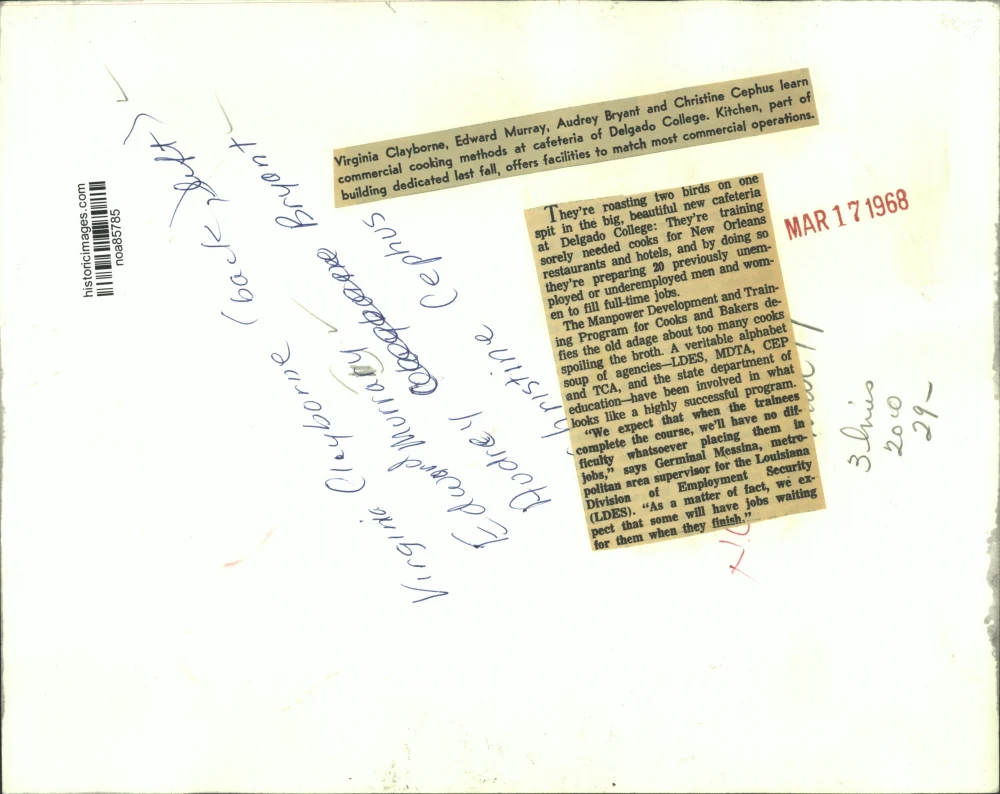 Virginia Clayborne, Edward Murray, Audrey Bryant and Christine Cephus learn
commercial cooking methods at cafeteria of Delgado College. Kitchen, part of
building dedicated last fall, offers facilities to match most commercial operations.
They're roasting two birds on one
spit in the big, beautiful new cafeteria
at Delgado College: They're training
sorely needed cooks for New Orleans
restaurants and hotels, and by doing so
they're preparing 20 previously unem-
ployed or underemployed men and wom-
en to fill full-time jobs.
The Manpower Development and Train-
ing Program for Cooks and Bakers de-
fies the old adage about too many cooks
spoiling the broth. A veritable alphabet
soup of agencies—LDES, MDTA, CEP
and TCA, and the state department of
education—have been involved in what
looks like a highly successful program.
"We expect that when the trainees
complete the course, we'll have no dif-
ficulty whatsoever placing them in
jobs," says Germinal Messina, metro-
politan area supervisor for the Louisiana
Division of Employment Security
(LDES). "As a matter of fact, we ex-
pect that some will have jobs waiting
for them when they finish."
MAR 17 1968
historicimages.com
noa85785
Virginia Clayborne (back left)
Edward Murray
Audrey Bryant
Christine Cephus
3 lines
2010
29-